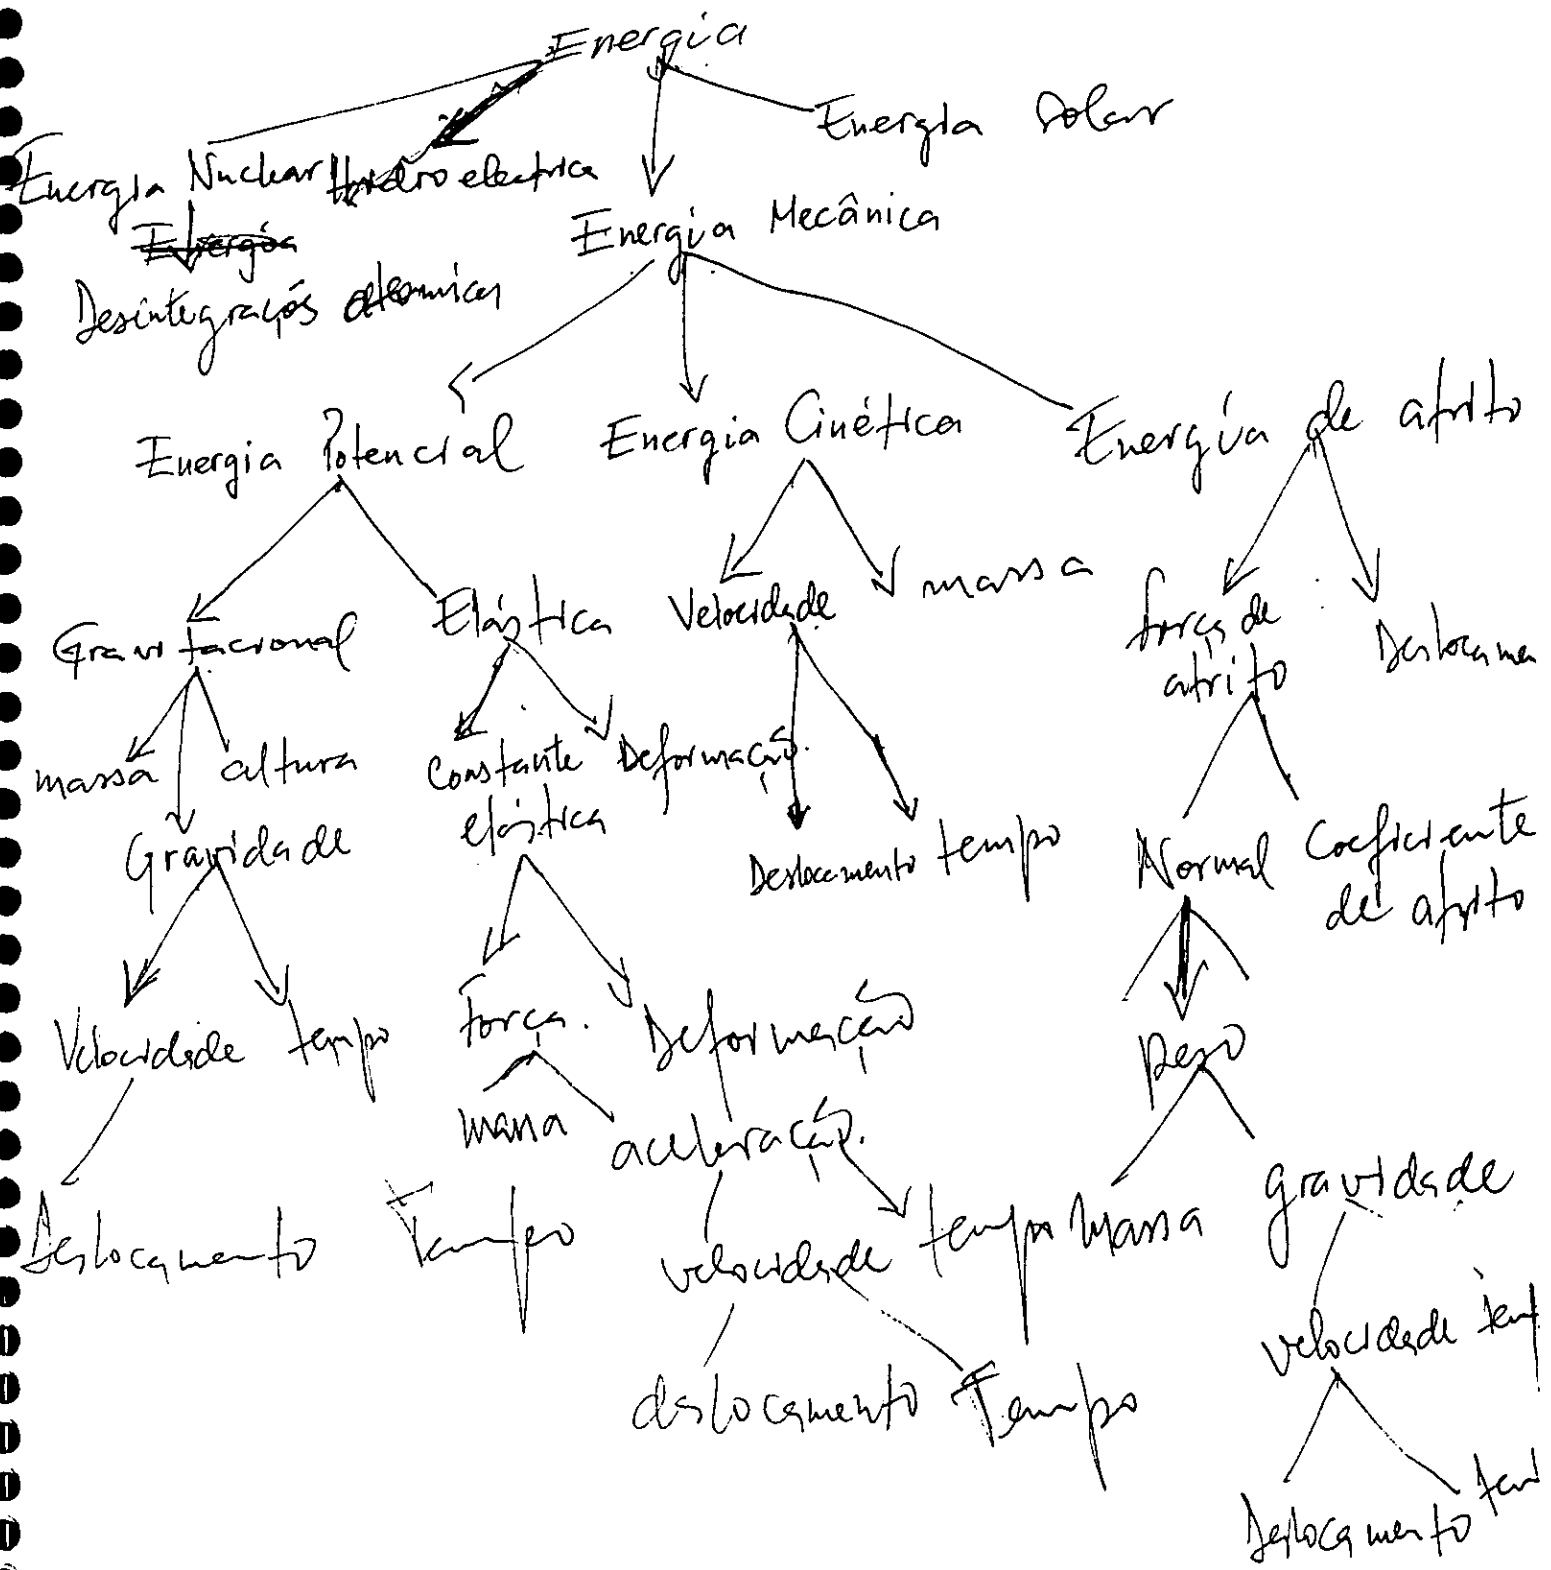 Energia
Energia Solar
Energia Nuclear Hidroelectrica
Energia Mecânica
Energia
Desintegração atomica
Energia Potencial Energia Cinética Energia de atrito
Gravitacional Elástica Velocidade massa força de Deslocamen
atrito
massa altura Constante Deformação.
elástica
Gravidade Deslocamento tempo Normal Coeficiente
de atrito
Velocidade tempo Força. Deformação peso
massa aceleração.
Deslocamento Tempo velocidade tempo Massa gravidade
velocidade temp
deslocamento Tempo
Deslocamento tem